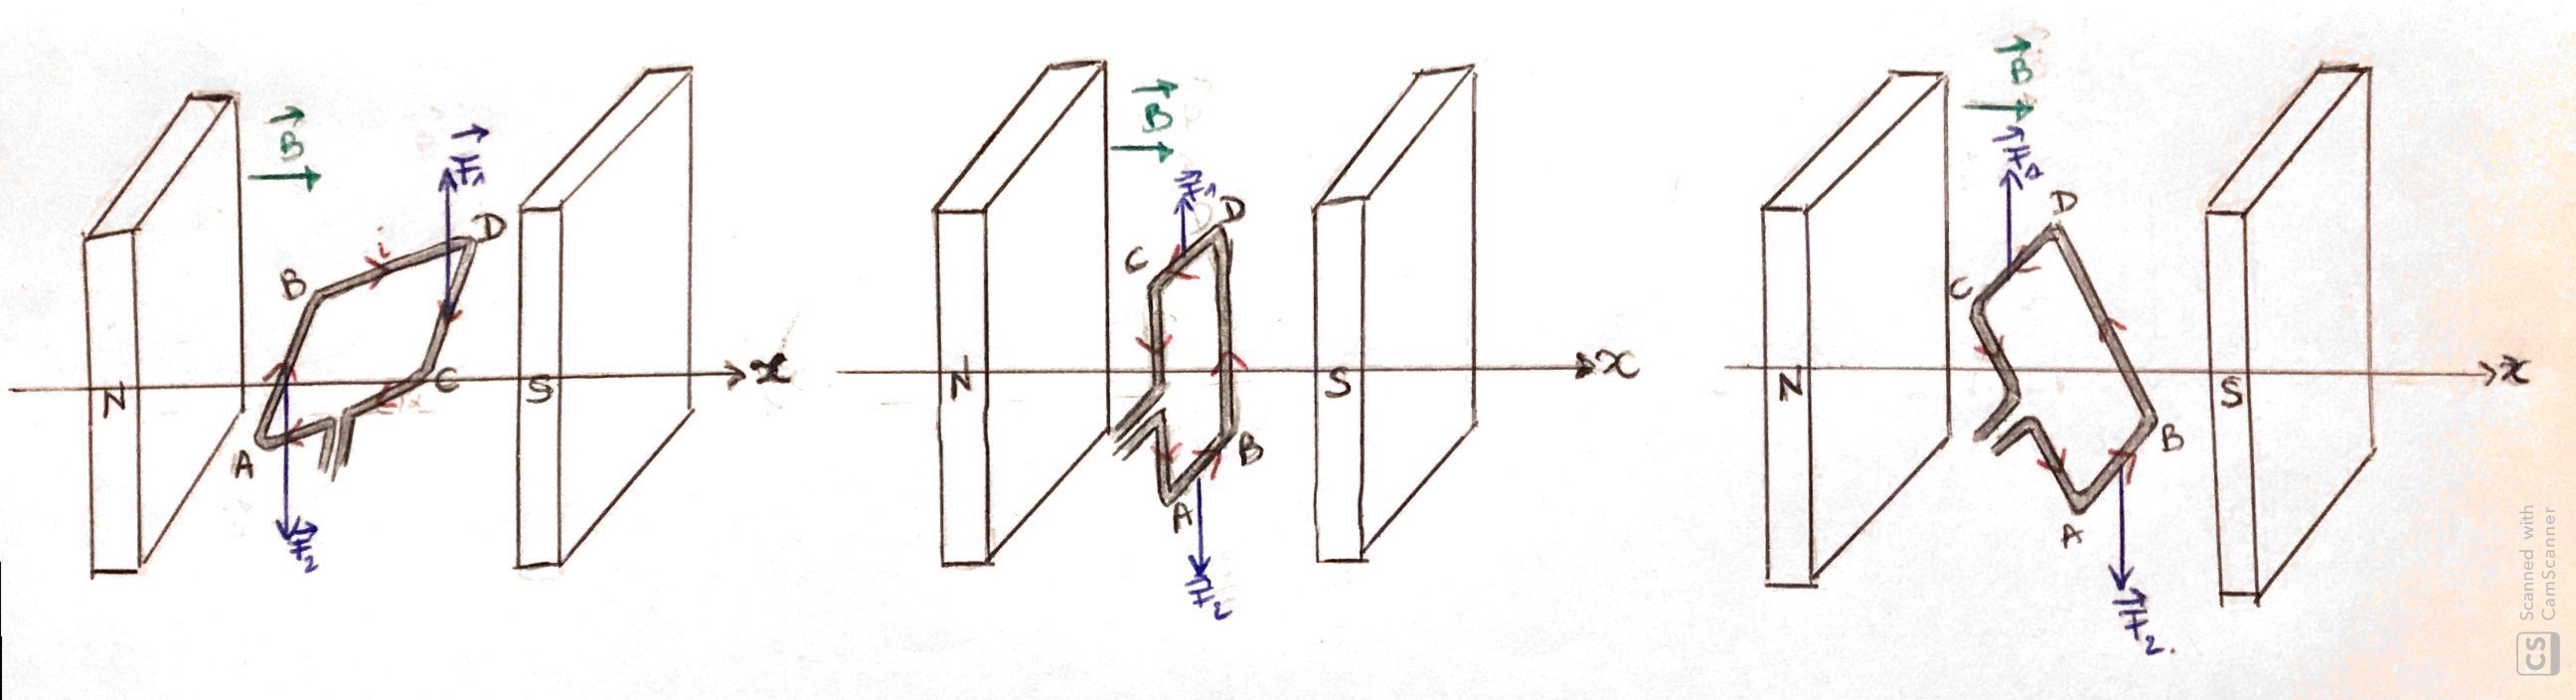 B
F₁
i
D
B
N
C
S
x
A
F₂
B
F₁
D
C
N
S
x
B
A
F₂
B
F₁
D
C
N
S
x
B
A
F₂.
CS Scanned with
CamScanner